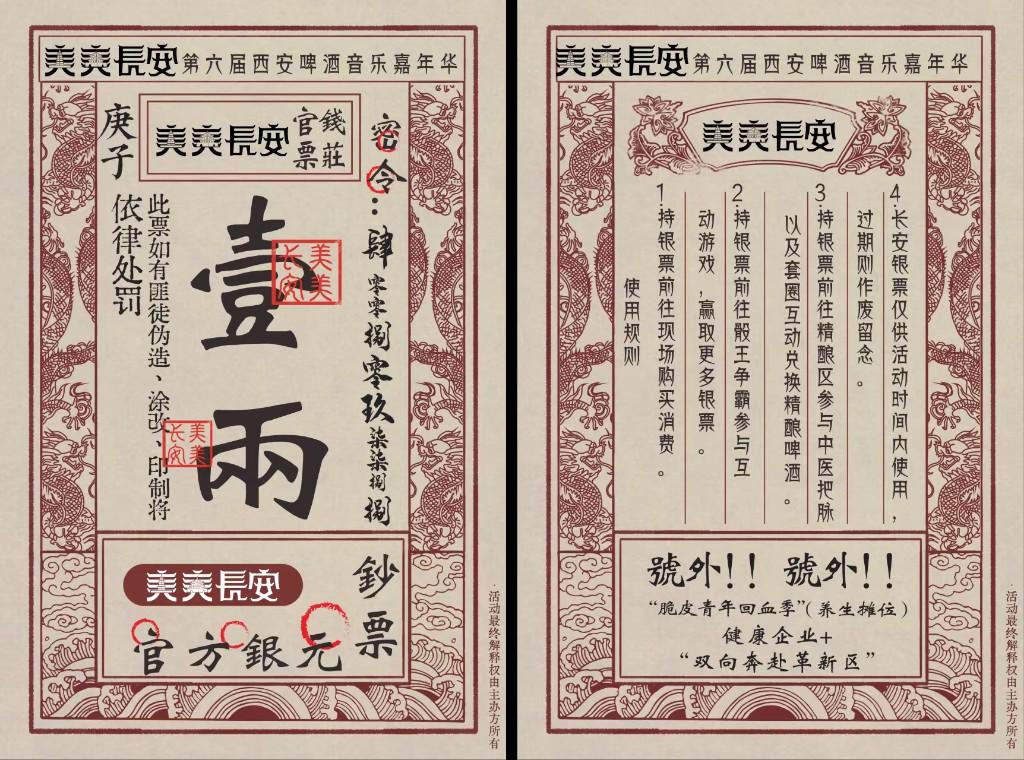 美美長安第六届西安啤酒音乐嘉年华
庚子
美美長安
錢莊
官票
密令：肆零零捌零玖柒柒捌捌
壹兩
美美长安
此票如有匪徒伪造、涂改、印制将
依律处罚
美美长安
美美長安
鈔票
官方銀元
·活动最终解释权由主办方所有
美美長安第六届西安啤酒音乐嘉年华
美美長安
使用规则
1.持银票前往现场购买消费。
2.持银票前往骰王争霸参与互
动游戏，赢取更多银票。
3.持银票前往精酿区参与中医把脉
以及套圈互动兑换精酿啤酒。
4.长安银票仅供活动时间内使用，
过期则作废留念。
號外!! 號外!!
“脆皮青年回血季”(养生摊位)
健康企业+
“双向奔赴革新区”
·活动最终解释权由主办方所有